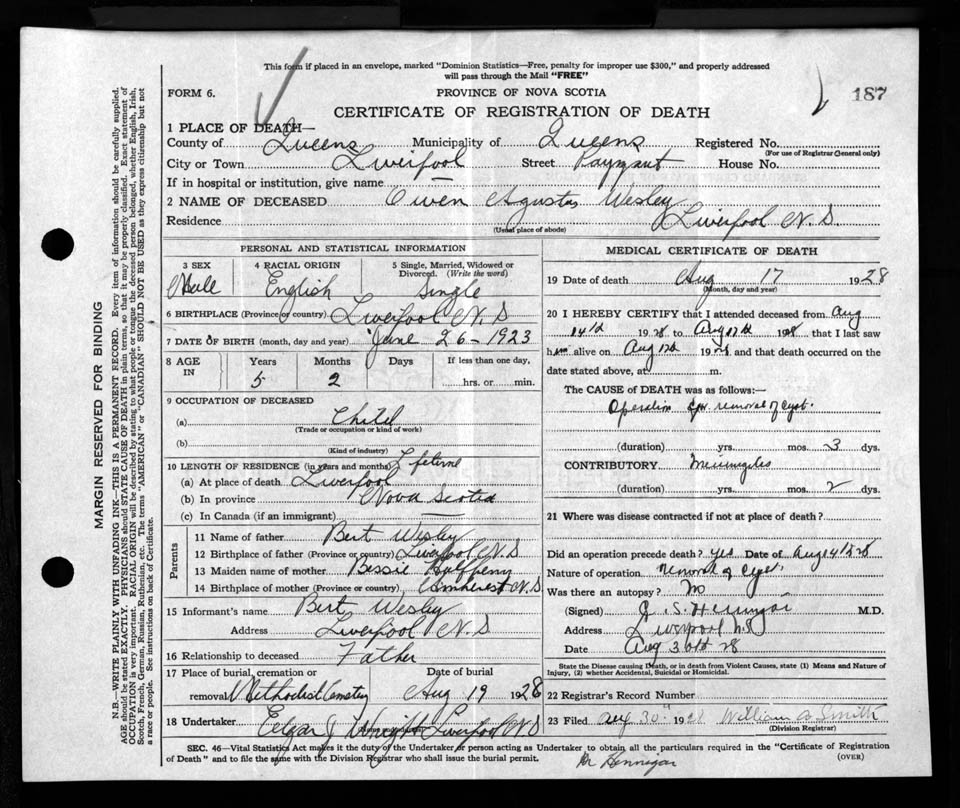 This form if placed in an envelope, marked "Dominion Statistics—Free, penalty for improper use $300," and properly addressed
will pass through the Mail "FREE"
FORM 6.
PROVINCE OF NOVA SCOTIA
187
CERTIFICATE OF REGISTRATION OF DEATH
1 PLACE OF DEATH—
County of Queens Municipality of Queens Registered No.
(For use of Registrar General only)
City or Town Liverpool Street Payzant House No.
If in hospital or institution, give name —
2 NAME OF DECEASED Owen Agustas Wesley
Residence Liverpool N.S
(Usual place of abode)
PERSONAL AND STATISTICAL INFORMATION
3 SEX 4 RACIAL ORIGIN 5 Single, Married, Widowed or Divorced. (Write the word)
Male English Single
6 BIRTHPLACE (Province or country) Liverpool N.S
7 DATE OF BIRTH (month, day and year) June 26-1923
8 AGE IN Years Months Days If less than one day,
5 2 hrs. or min.
9 OCCUPATION OF DECEASED
(a) Child
(Trade or occupation or kind of work)
(b)
(Kind of industry)
10 LENGTH OF RESIDENCE (in years and months) Lifetime
(a) At place of death Liverpool
(b) In province Nova Scotia
(c) In Canada (if an immigrant) —
Parents
11 Name of father Bert Wesley
12 Birthplace of father (Province or country) Liverpool N.S
13 Maiden name of mother Bessie Halfpenny
14 Birthplace of mother (Province or country) Amherst N.S
15 Informant's name Bert Wesley
Address Liverpool N.S
16 Relationship to deceased Father
17 Place of burial, cremation or Date of burial
removal Methodist Cemetery Aug 19 1928
18 Undertaker Edgar J Wright Liverpool N S
MEDICAL CERTIFICATE OF DEATH
19 Date of death Aug 17 1928
(Month, day and year)
20 I HEREBY CERTIFY that I attended deceased from Aug
14th 1928 to Aug 17th 1928 that I last saw
him alive on Aug 17th 1928, and that death occurred on the
date stated above, at m.
The CAUSE OF DEATH was as follows:—
Operation for removal of cyst.
(duration) yrs. mos. 3 dys.
CONTRIBUTORY Meningites
(duration) yrs. mos. 2 dys.
21 Where was disease contracted if not at place of death?
Did an operation precede death? yes Date of Aug 14th 28
Nature of operation removal of cyst.
Was there an autopsy? No
(Signed) J. S. Hennigar M.D.
Address Liverpool N.S
Date Aug 30th 28
State the Disease causing Death, or in death from Violent Causes, state (1) Means and Nature of
Injury, (2) whether Accidental, Suicidal or Homicidal.
22 Registrar's Record Number
23 Filed Aug 30" 1928 William A Smith
(Division Registrar)
SEC. 46—Vital Statistics Act makes it the duty of the Undertaker or person acting as Undertaker to obtain all the particulars required in the "Certificate of Registration
of Death" and to file the same with the Division Registrar who shall issue the burial permit.
(OVER)
Dr Hennigar
MARGIN RESERVED FOR BINDING
N.B.—WRITE PLAINLY WITH UNFADING INK—THIS IS A PERMANENT RECORD. Every item of information should be carefully supplied.
AGE should be stated EXACTLY. PHYSICIANS should STATE CAUSE OF DEATH in plain terms, so that it may be properly classified. Exact statement of
OCCUPATION is very important. RACIAL ORIGIN will be described by stating to what people or tongue the deceased person belonged, whether English, Irish,
Scotch, French, German, Russian, Ruthenian, etc. The terms "AMERICAN" or "CANADIAN" SHOULD NOT BE USED as they express citizenship but not
a race or people. See instructions on back of Certificate.